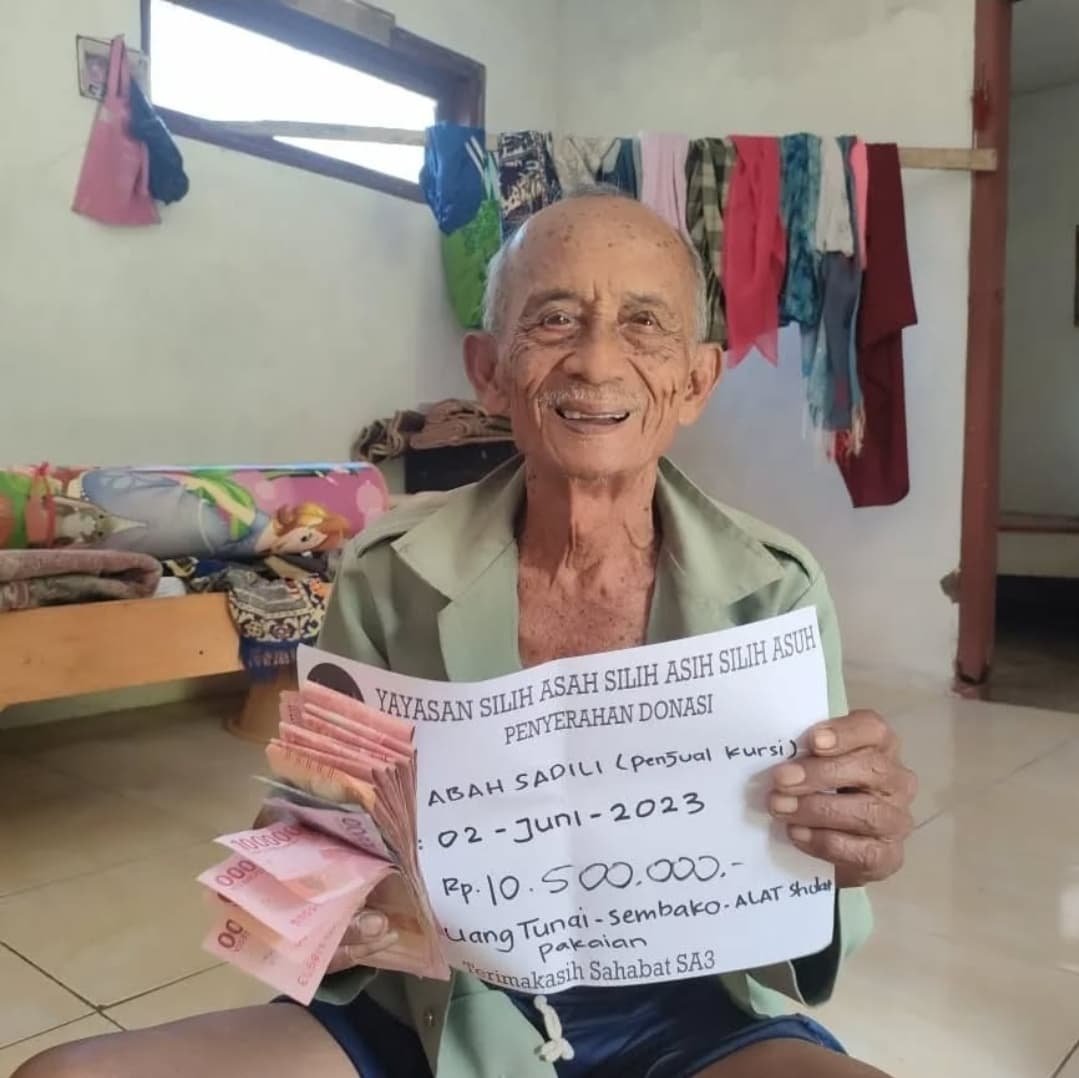 YAYASAN SILIH ASAH SILIH ASIH SILIH ASUH
PENYERAHAN DONASI
ABAH SADILI (penjual kursi)
: 02 - Juni - 2023
Rp. 10.500.000.-
Uang Tunai - sembako - ALAT sholat
pakaian
Terimakasih Sahabat SA3
100000
000
00